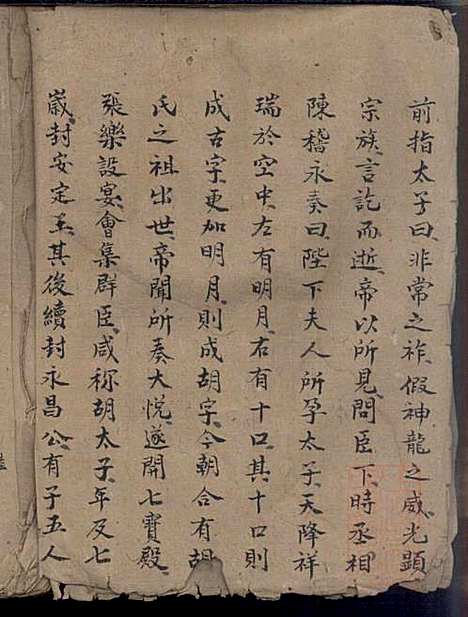 前指太子曰非常之祚假神龍之威光顕
宗族言訖而逝帝以所見問臣下時丞相
陳稽永奏曰陛下夫人所孕太子天降祥
瑞於空中左有明月右有十口其十口則
成古字更加明月則成胡字今朝合有胡
氏之祖出世帝聞所奏大悦遂開七寶殿
張樂設宴會集群臣咸称胡太子年及七
嵗封安定王其後續封永昌公有子五人